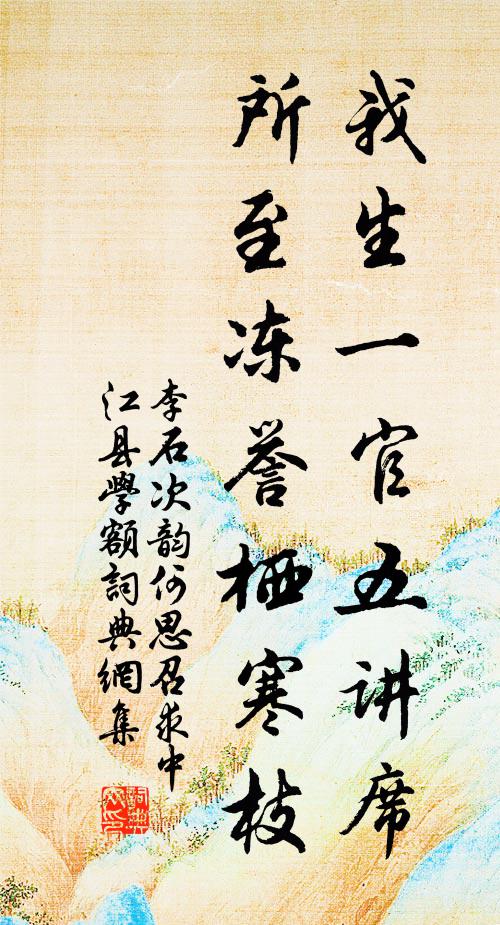 我生一官五讲席
所至冻誉栖寒枝
李石次韵何思召求中
江县學额詞典網集